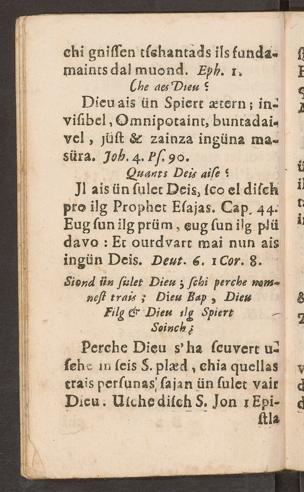 chi gnissen tschantads ils funda-
maints dal muond. Eph. 1.
Che aes Dieu?
Dieu ais ün Spiert ætern; in-
visibel, Omnipotaint, buntadai-
vel, jüst & zainza ingüna ma-
süra. Joh. 4. Ps. 90.
Quants Deis aise?
Jl ais ün sulet Deis, sco el disch
pro ilg Prophet Esajas. Cap. 44.
Eug sun ilg prüm, eug sun ilg plü
davo: Et ourdvart mai nun ais
ingün Deis. Deut. 6. 1 Cor. 8.
Siond ün sulet Dieu; schi perche nom-
nest trais; Dieu Bap, Dieu
Filg & Dieu ilg Spiert
Soinch?
Perche Dieu s'ha scuvert u-
sche in seis S. plæd, chia quellas
trais persunas, sajan ün sulet vair
Dieu. Usche disch S. Jon 1 Epi-
stla